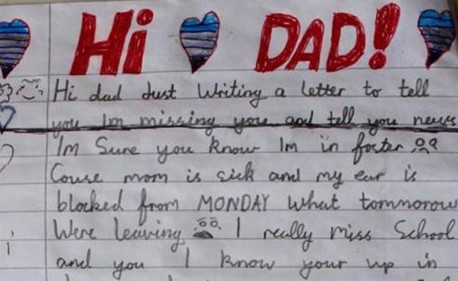 Hi DAD!
Hi dad Just Writing a letter to tell
you Im missing you and tell you news
Im Sure you know Im in foster
Couse mom is sick and my ear is
blocked from MONDAY What tommorow
Were leaving I really miss School
and you I know your up in